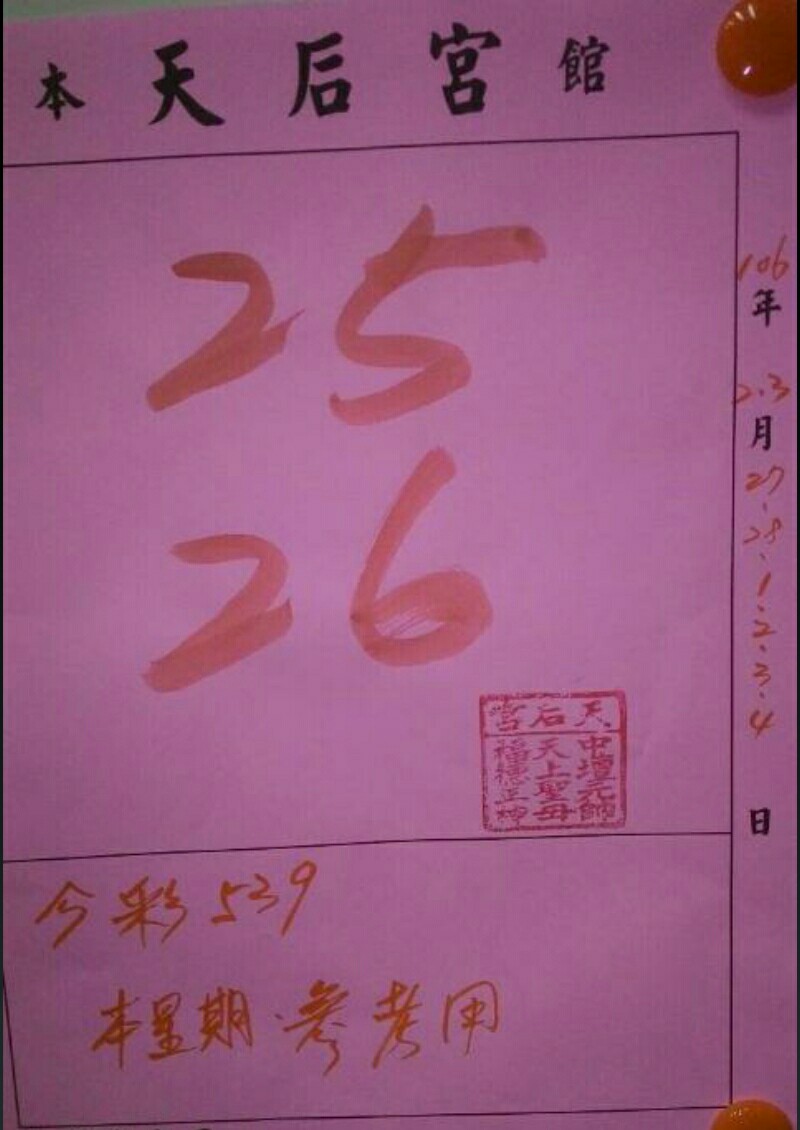 本 天后宮 館
25
26
天后宮
中壇元帥
天上聖母
福德正神
106年 2.3月 27、28、1、2、3、4 日
今彩539
本星期.參考用